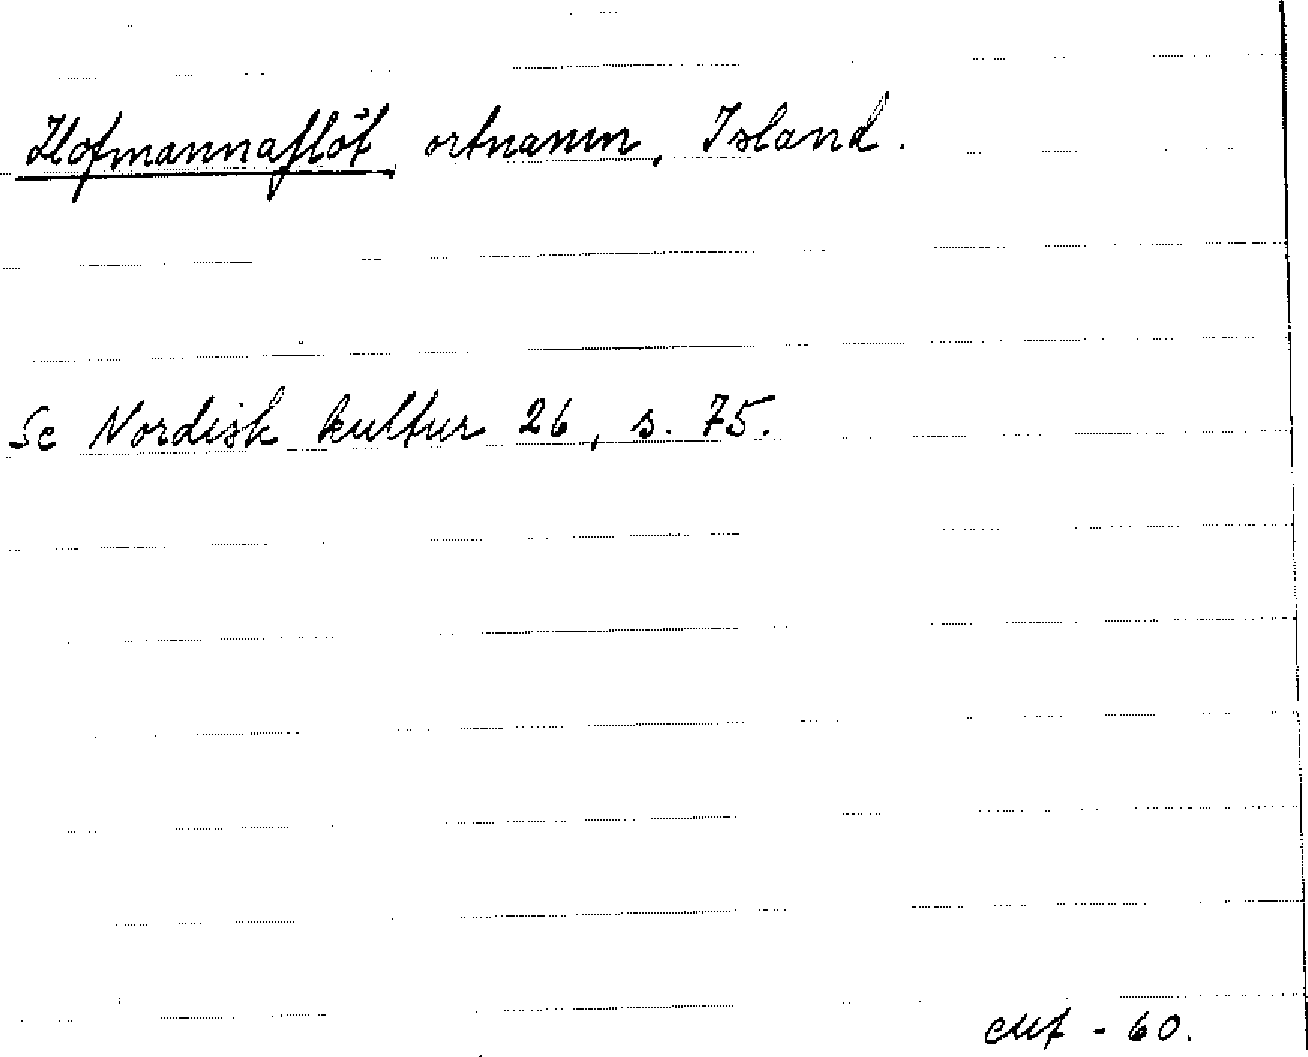 Hofmannaflöt ortnamn, Island.
Se Nordisk kultur 26, s. 75.
- 60.